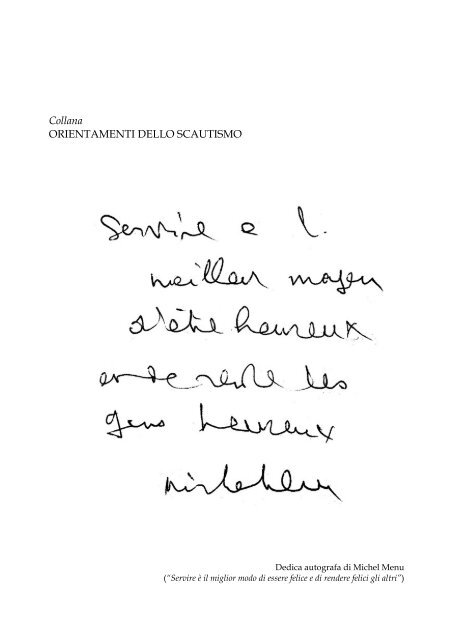 Collana
ORIENTAMENTI DELLO SCAUTISMO
Servire e l.
meilleur moyen
d'être heureux
et de rendre les
gens heureux
Michel Menu
Dedica autografa di Michel Menu
("Servire è il miglior modo di essere felice e di rendere felici gli altri")